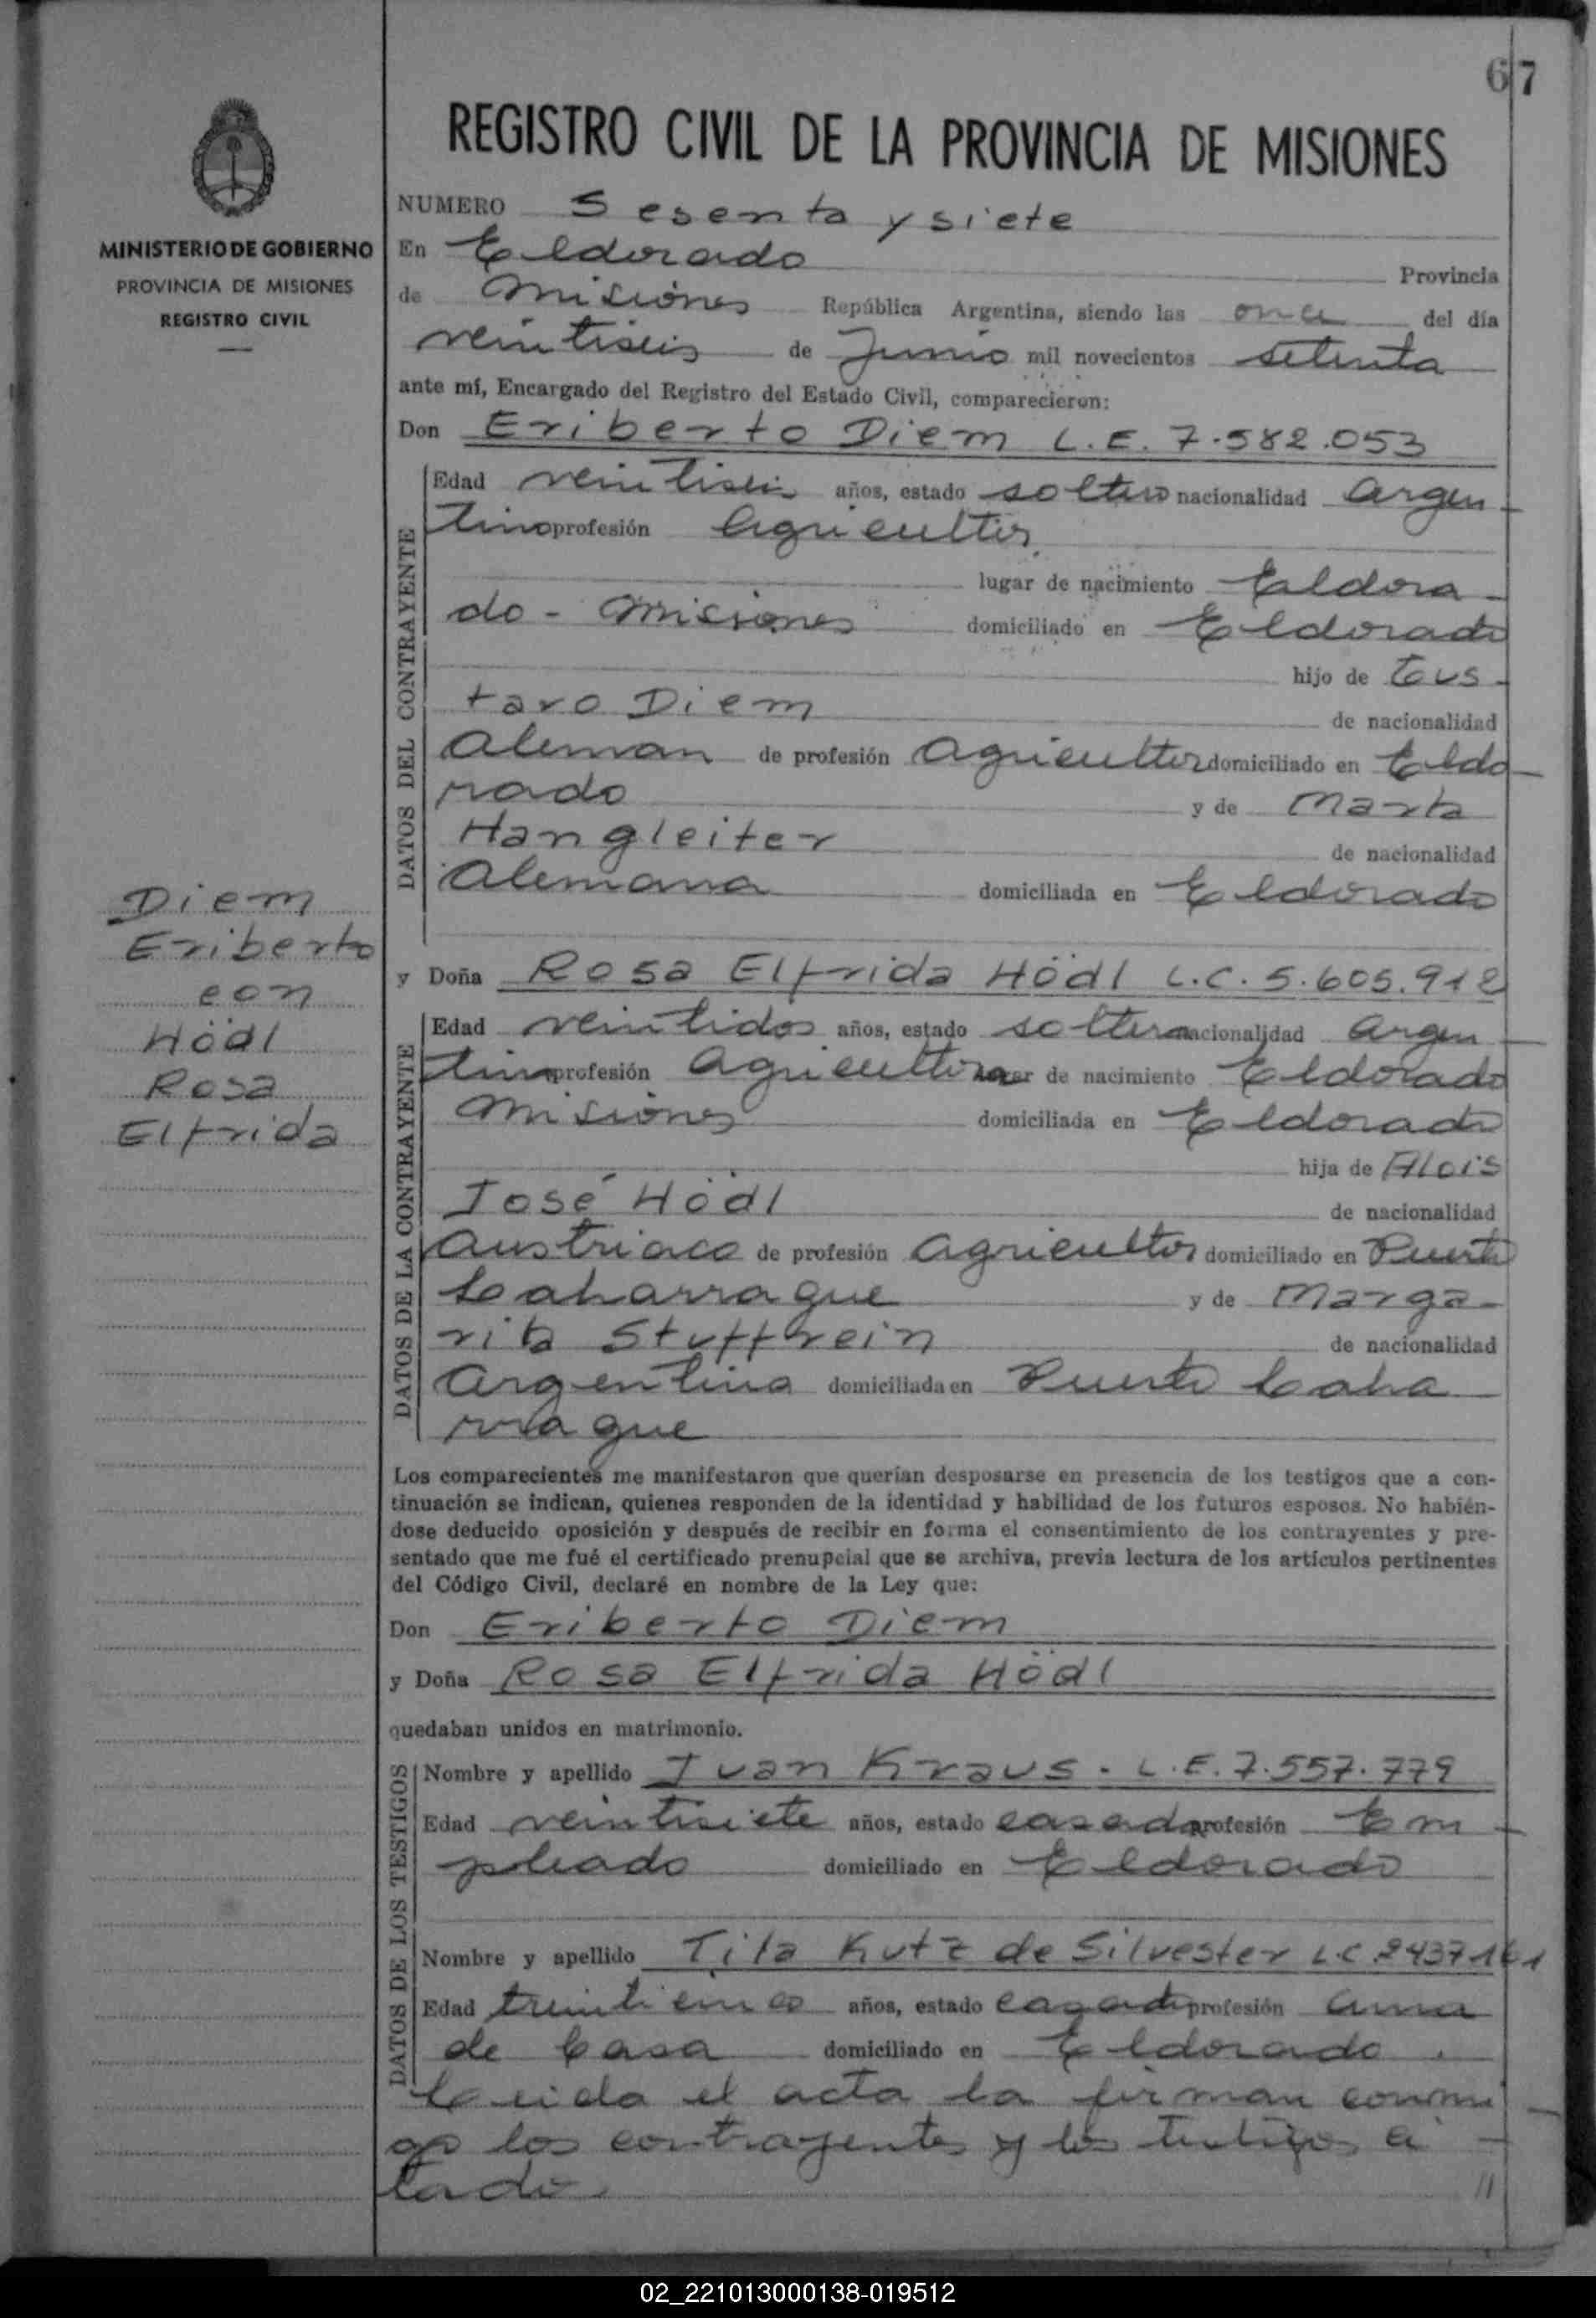 67
MINISTERIO DE GOBIERNO
PROVINCIA DE MISIONES
REGISTRO CIVIL
Diem
Eriberto
con
Hödl
Rosa
Elfrida
REGISTRO CIVIL DE LA PROVINCIA DE MISIONES
NUMERO Sesenta y siete
En Eldorado Provincia
de Misiones República Argentina, siendo las once del día
veintiseis de Junio mil novecientos setenta
ante mí, Encargado del Registro del Estado Civil, comparecieron:
Don Eriberto Diem L.E. 7.582.053
DATOS DEL CONTRAYENTE
Edad veintiseis años, estado soltero nacionalidad Argen-
tino profesión Agricultor
lugar de nacimiento Eldora-
do - Misiones domiciliado en Eldorado
hijo de Gus-
tavo Diem de nacionalidad
Aleman de profesión Agricultor domiciliado en Eldo-
rado y de Marta
Hangleiter de nacionalidad
Alemana domiciliada en Eldorado
y Doña Rosa Elfrida Hödl L.C. 5.605.912
DATOS DE LA CONTRAYENTE
Edad veintidos años, estado soltera nacionalidad Argen-
tina profesión Agricultora lugar de nacimiento Eldorado
Misiones domiciliada en Eldorado
hija de Alois
José Hödl de nacionalidad
Austriaco de profesión Agricultor domiciliado en Puerto
Laharrague y de Marga-
rita Stuffrein de nacionalidad
Argentina domiciliada en Puerto Laha
rrague
Los comparecientes me manifestaron que querían desposarse en presencia de los testigos que a con-
tinuación se indican, quienes responden de la identidad y habilidad de los futuros esposos. No habién-
dose deducido oposición y después de recibir en forma el consentimiento de los contrayentes y pre-
sentado que me fué el certificado prenupcial que se archiva, previa lectura de los artículos pertinentes
del Código Civil, declaré en nombre de la Ley que:
Don Eriberto Diem
y Doña Rosa Elfrida Hödl
quedaban unidos en matrimonio.
DATOS DE LOS TESTIGOS
Nombre y apellido Juan Kraus - L.E. 7.557.779
Edad veintisiete años, estado casado profesión Em-
pleado domiciliado en Eldorado
Nombre y apellido Tita Kutz de Silvester L.C. 2437161
Edad treinticinco años, estado casada profesión Ama
de Casa domiciliado en Eldorado.
Leida el acta la firman conmi-
go los contrayentes y los testigos ci-
tado. //
02_221013000138-019512